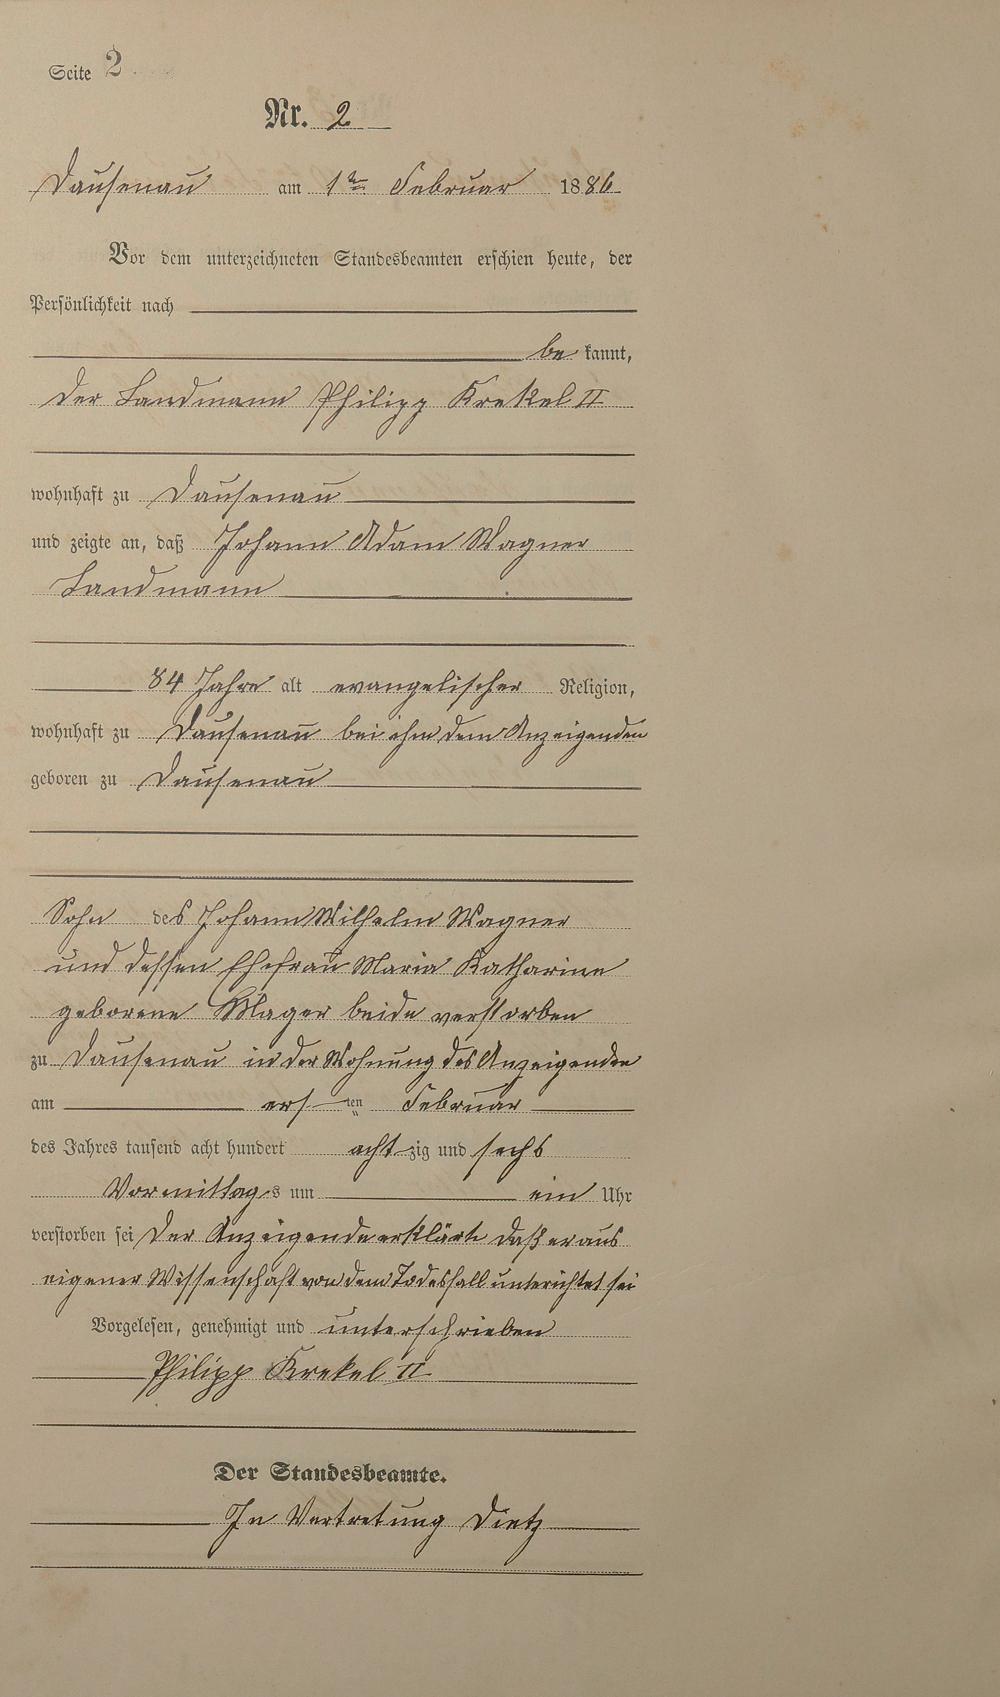 Seite 2
Nr. 2
Dausenau am 1ten Februar 1886
Vor dem unterzeichneten Standesbeamten erschien heute, der
Persönlichkeit nach
be kannt,
der Landmann Philipp Krekel II
wohnhaft zu Dausenau
und zeigte an, daß Johann Adam Wagner
Landmann
84 Jahre alt evangelischer Religion,
wohnhaft zu Dausenau bei ihm dem Anzeigenden
geboren zu Dausenau
Sohn des Johann Wilhelm Wagner
und dessen Ehefrau Maria Katharine
geborene Mager beide verstorben
zu Dausenau in der Wohnung des Anzeigenden
am ersten Februar
des Jahres tausend acht hundert achtzig und sechs
Vormittags um ein Uhr
verstorben sei Der Anzeigende erklärte daß er aus
eigener Wissenschaft von dem Todesfall unterichtet sei
Vorgelesen, genehmigt und unterschrieben
Philipp Krekel II
Der Standesbeamte.
In Vertretung Dietz